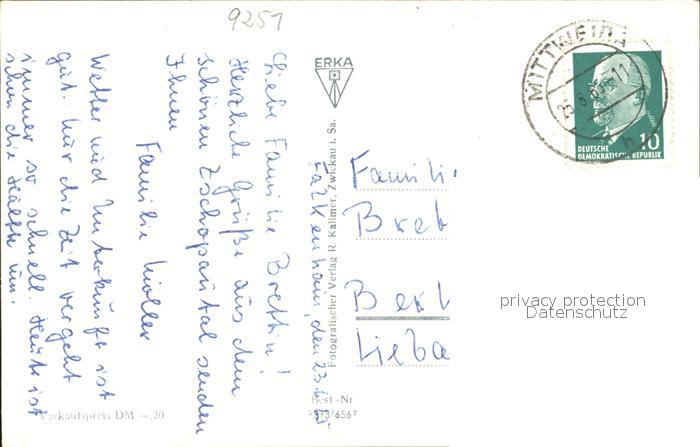 9251
Liebe Familie Brettin!
Herzliche Grüße aus dem
schönen Zschopautal senden
Ihnen
Familie Müller
Wetter und Unterkunft ist
gut. Nur die Zeit vergeht
immer so schnell. Heute ist
schon die Hälfte um.
Verkaufspreis DM —,20
ERKA
Fotografischer Verlag R. Kallmer, Zwickau i. Sa.
Falkenhain, den 23.6.
Best.-Nr
MITTWEIDA
DEUTSCHE
DEMOKRATISCHE REPUBLIK
10
Famili
Bret
Berl
Lieba
privacy protection
Datenschutz